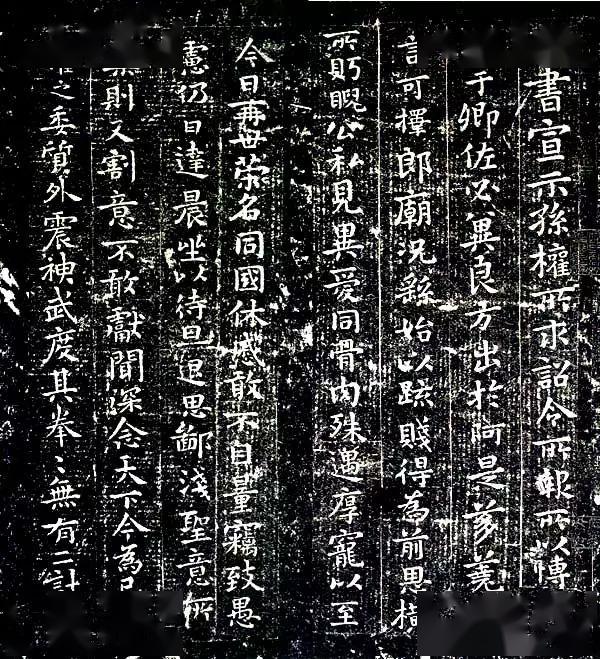 書宣示孫權所求詔令所報所以博
于卿佐必冀良方出於阿是芻蕘
言可擇郎廟況繇始以疏賤得為前恩橫
所眄睨公私見異愛同骨肉殊遇厚寵以至
今日再世榮名同國休慼敢不自量竊致愚
慮仍日達晨坐以待旦退思鄙淺聖意所
則又割意不敢獻聞深念天下今為已
之委質外震神武度其拳〻無有二計